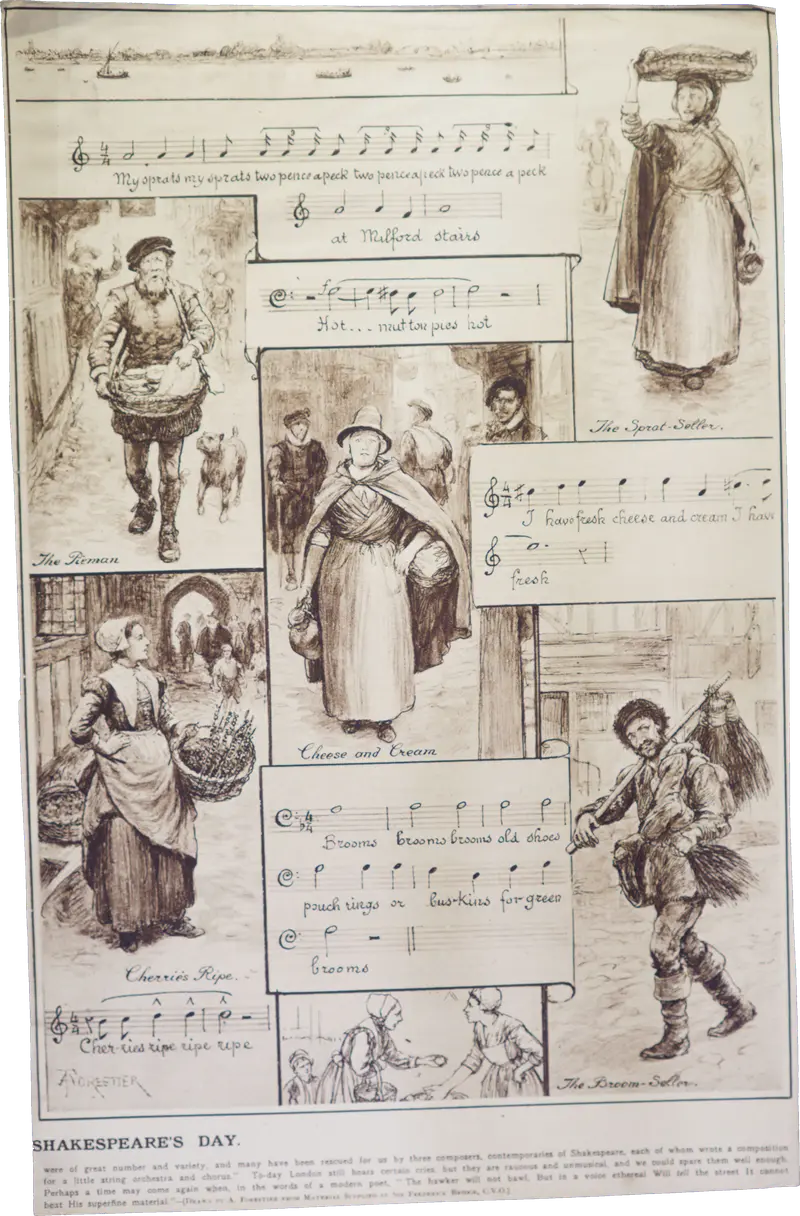 My sprats my sprats two pence a peck two pence a peck two pence a peck
at Milford stairs
Hot... mutton pies hot
The Sprat-Seller.
I have fresh cheese and cream I have
fresh
The Pieman
Cheese and Cream
Brooms brooms brooms old shoes
pouch rings or bus-kins for green
brooms
Cherries Ripe.
Cher-ries ripe ripe ripe
A. FORESTIER
The Broom-Seller.
SHAKESPEARE'S DAY.
were of great number and variety, and many have been rescued for us by three composers, contemporaries of Shakespeare, each of whom wrote a composition
for a little string orchestra and chorus." To-day London still hears certain cries, but they are raucous and unmusical, and we could spare them well enough.
Perhaps a time may come again when, in the words of a modern poet, "The hawker will not bawl, But in a voice ethereal Will tell the street It cannot
beat His superfine material."—[DRAWN BY A. FORESTIER FROM MATERIAL SUPPLIED BY SIR FREDERICK BRIDGE, C.V.O.]